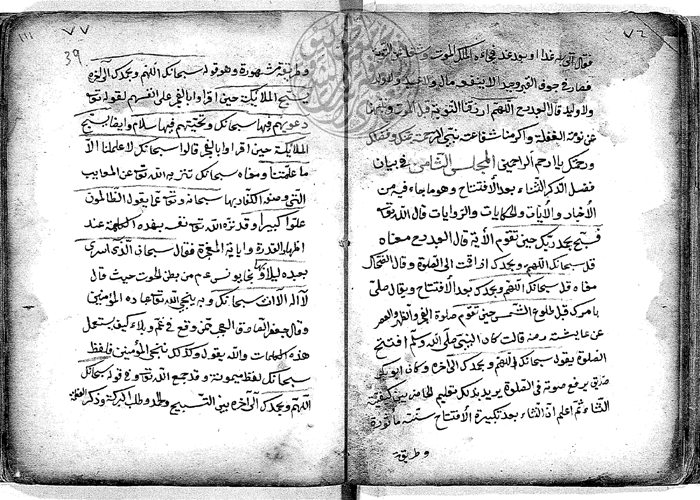 ٧٦
فقال اتوب غدا او بعد غد فجاءه ملك الموت
فصار في جوف القبر وحيدا لا ينفعه مال
ولا وليد قال العبد اللهم ارزقنا التوبة قبل الموت
عن نومة الغفلة واكرمنا شفاعة نبي الرحمة بمنك وفضلك
ورحمتك يا ارحم الراحمين المجلس الثامن في بيان
فضل الذكر الثناء بعد الافتتاح وهو ما جاء فيه من
الأخبار والآيات والحكايات والروايات قال الله تعالى
فسبح بحمد ربك حين تقوم الآية قال معناه
قل سبحانك اللهم وبحمدك اذا قمت الى الصلوة وقال الضحاك
معناه قل سبحانك اللهم وبحمدك بعد الافتتاح ويقال صلى
بامر ربك قبل طلوع الشمس حين تقوم صلوة الفجر والظهر والعصر
عن عايشته رضه قالت كان النبي صلى الله وسلم اذا افتتح
الصلوة يقول سبحانك اللهم وبحمدك الى آخره وكان ابو بكر
صديق يرفع صوته في الصلوة يريد بذلك تعليم الحاضرين كيفية
الثناء ثم اعلم ان الثناء بعد تكبيرة الافتتاح سنة مأثورة
وطريقة
٧٧
39
١١١
وطريقة مشهورة وهو قوله سبحانك اللهم وبحمدك الى آخره
يسبح الملائكة حين اقروا بالعجز على انفسهم لقوله تع
دعويهم فيها سبحانك وتحيتهم فيها سلام وايضا تسبيح
الملائكة حين اقروا بالعجز قالوا سبحانك لا علم لنا الا
ما علمتنا ومعناه سبحانك تنزيه الله تع عن المعايب
التي وصف الكفار بها سبحانه وتع عما يقول الظالمون
علوا كبيرا وقد نزه الله تع نفسه بهذه الكلمة عند
اظهار القدرة واياته المعجزة فقال سبحان الذي اسرى
بعبده ليلا وبها نجا يونس عم من بطن الحوت حيث قال
لا اله الا انت سبحانك وبه ينجي الله تع عباده المؤمنين
وقال جعفر الصادق العجب ممن وقع في غم وبلاء كيف يستعمل
هذه الكلمات والله يقول وكذلك ننجي المؤمنين فلفظ
سبحانك لفظ ميمونة وقد جمع الله تع في قوله سبحانك
اللهم وبحمدك الى آخره بين التسبيح والحمد وطلب البركة وذكر العظمة